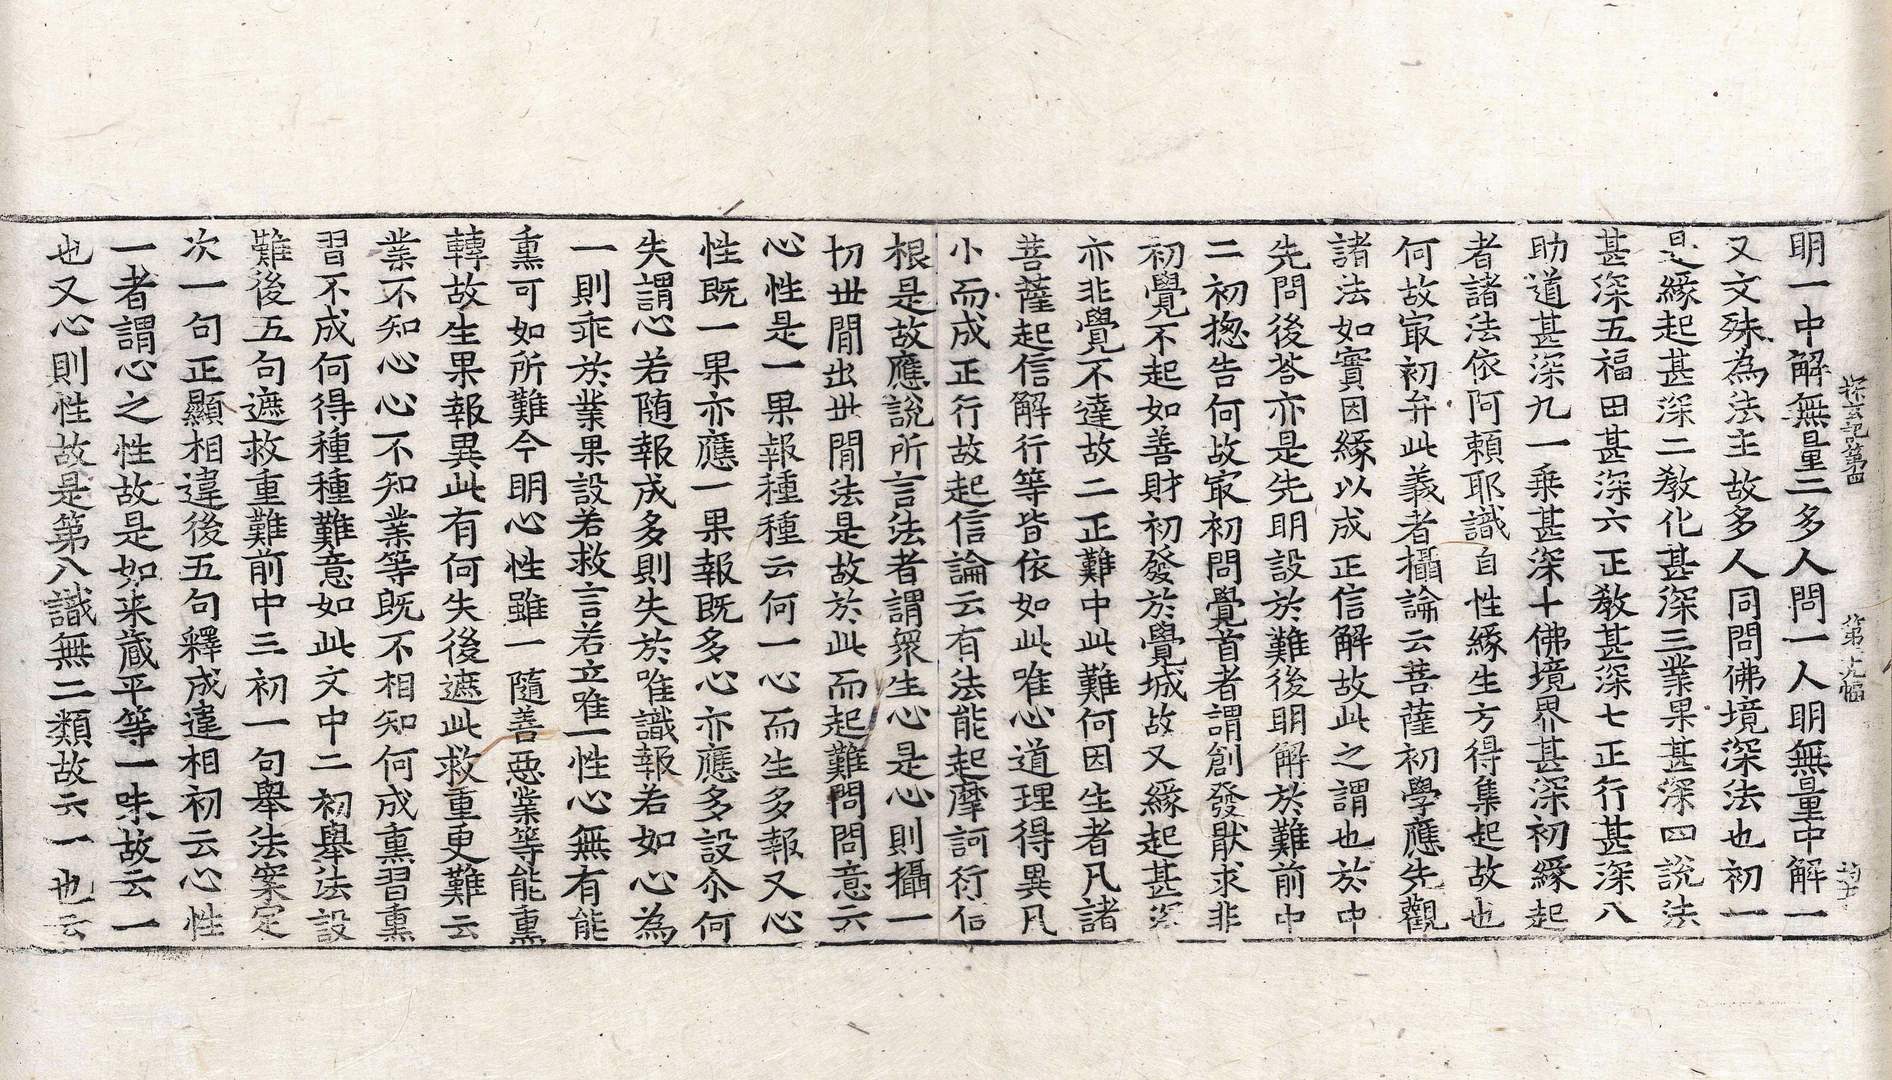 探玄記第四　第十九幅
明一中解無量二多人問一人明無量中解一
又文殊為法主故多人同問佛境深法也初一
是緣起甚深二教化甚深三業果甚深四說法
甚深五福田甚深六正教甚深七正行甚深八
助道甚深九一乗甚深十佛境界甚深初緣起
者諸法依阿頼耶識自性緣生方得集起故也
何故㝡初弁此義者攝論云菩薩初學應先觀
諸法如實因緣以成正信解故此之謂也於中
先問後荅亦是先明設於難後明解於難前中
二初揔告何故㝡初問覺首者謂創發猒求非
初覺不起如善財初發於覺城故又緣起甚深
亦非覺不達故二正難中此難何因生者凡諸
菩薩起信解行等皆依如此唯心道理得異凡
小而成正行故起信論云有法能起摩訶衍信
根是故應說所言法者謂衆生心是心則攝一
切丗間出丗間法是故於此而起難問問意云
心性是一果報種種云何一心而生多報又心
性既一果亦應一果報既多心亦應多設尒何
失謂心若随報成多則失於唯識報若如心為
一則乖於業果設若救言若立唯一性心無有能
熏可如所難今明心性雖一隨善惡業等能熏
轉故生果報異此有何失後遮此救重更難云
業不知心心不知業等既不相知何成熏習熏
習不成何得種種難意如此文中二初舉法設
難後五句遮救重難前中三初一句舉法案定
次一句正顯相違後五句釋成違相初云心性
一者謂心之性故是如来蔵平等一味故云一
也又心則性故是第八識無二類故云一也云